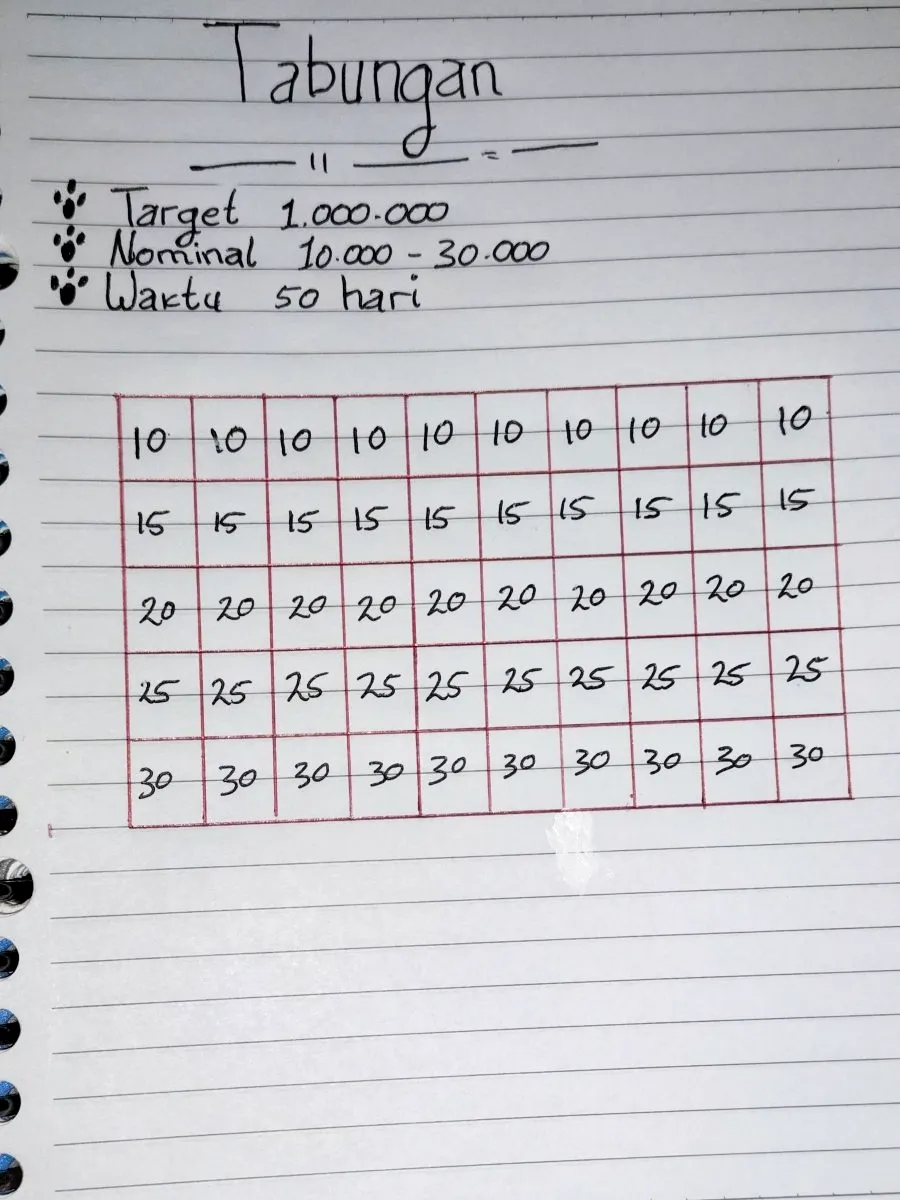 Tabungan
Target 1.000.000
Nominal 10.000 - 30.000
Waktu 50 hari
10 10 10 10 10 10 10 10 10 10
15 15 15 15 15 15 15 15 15 15
20 20 20 20 20 20 20 20 20 20
25 25 25 25 25 25 25 25 25 25
30 30 30 30 30 30 30 30 30 30